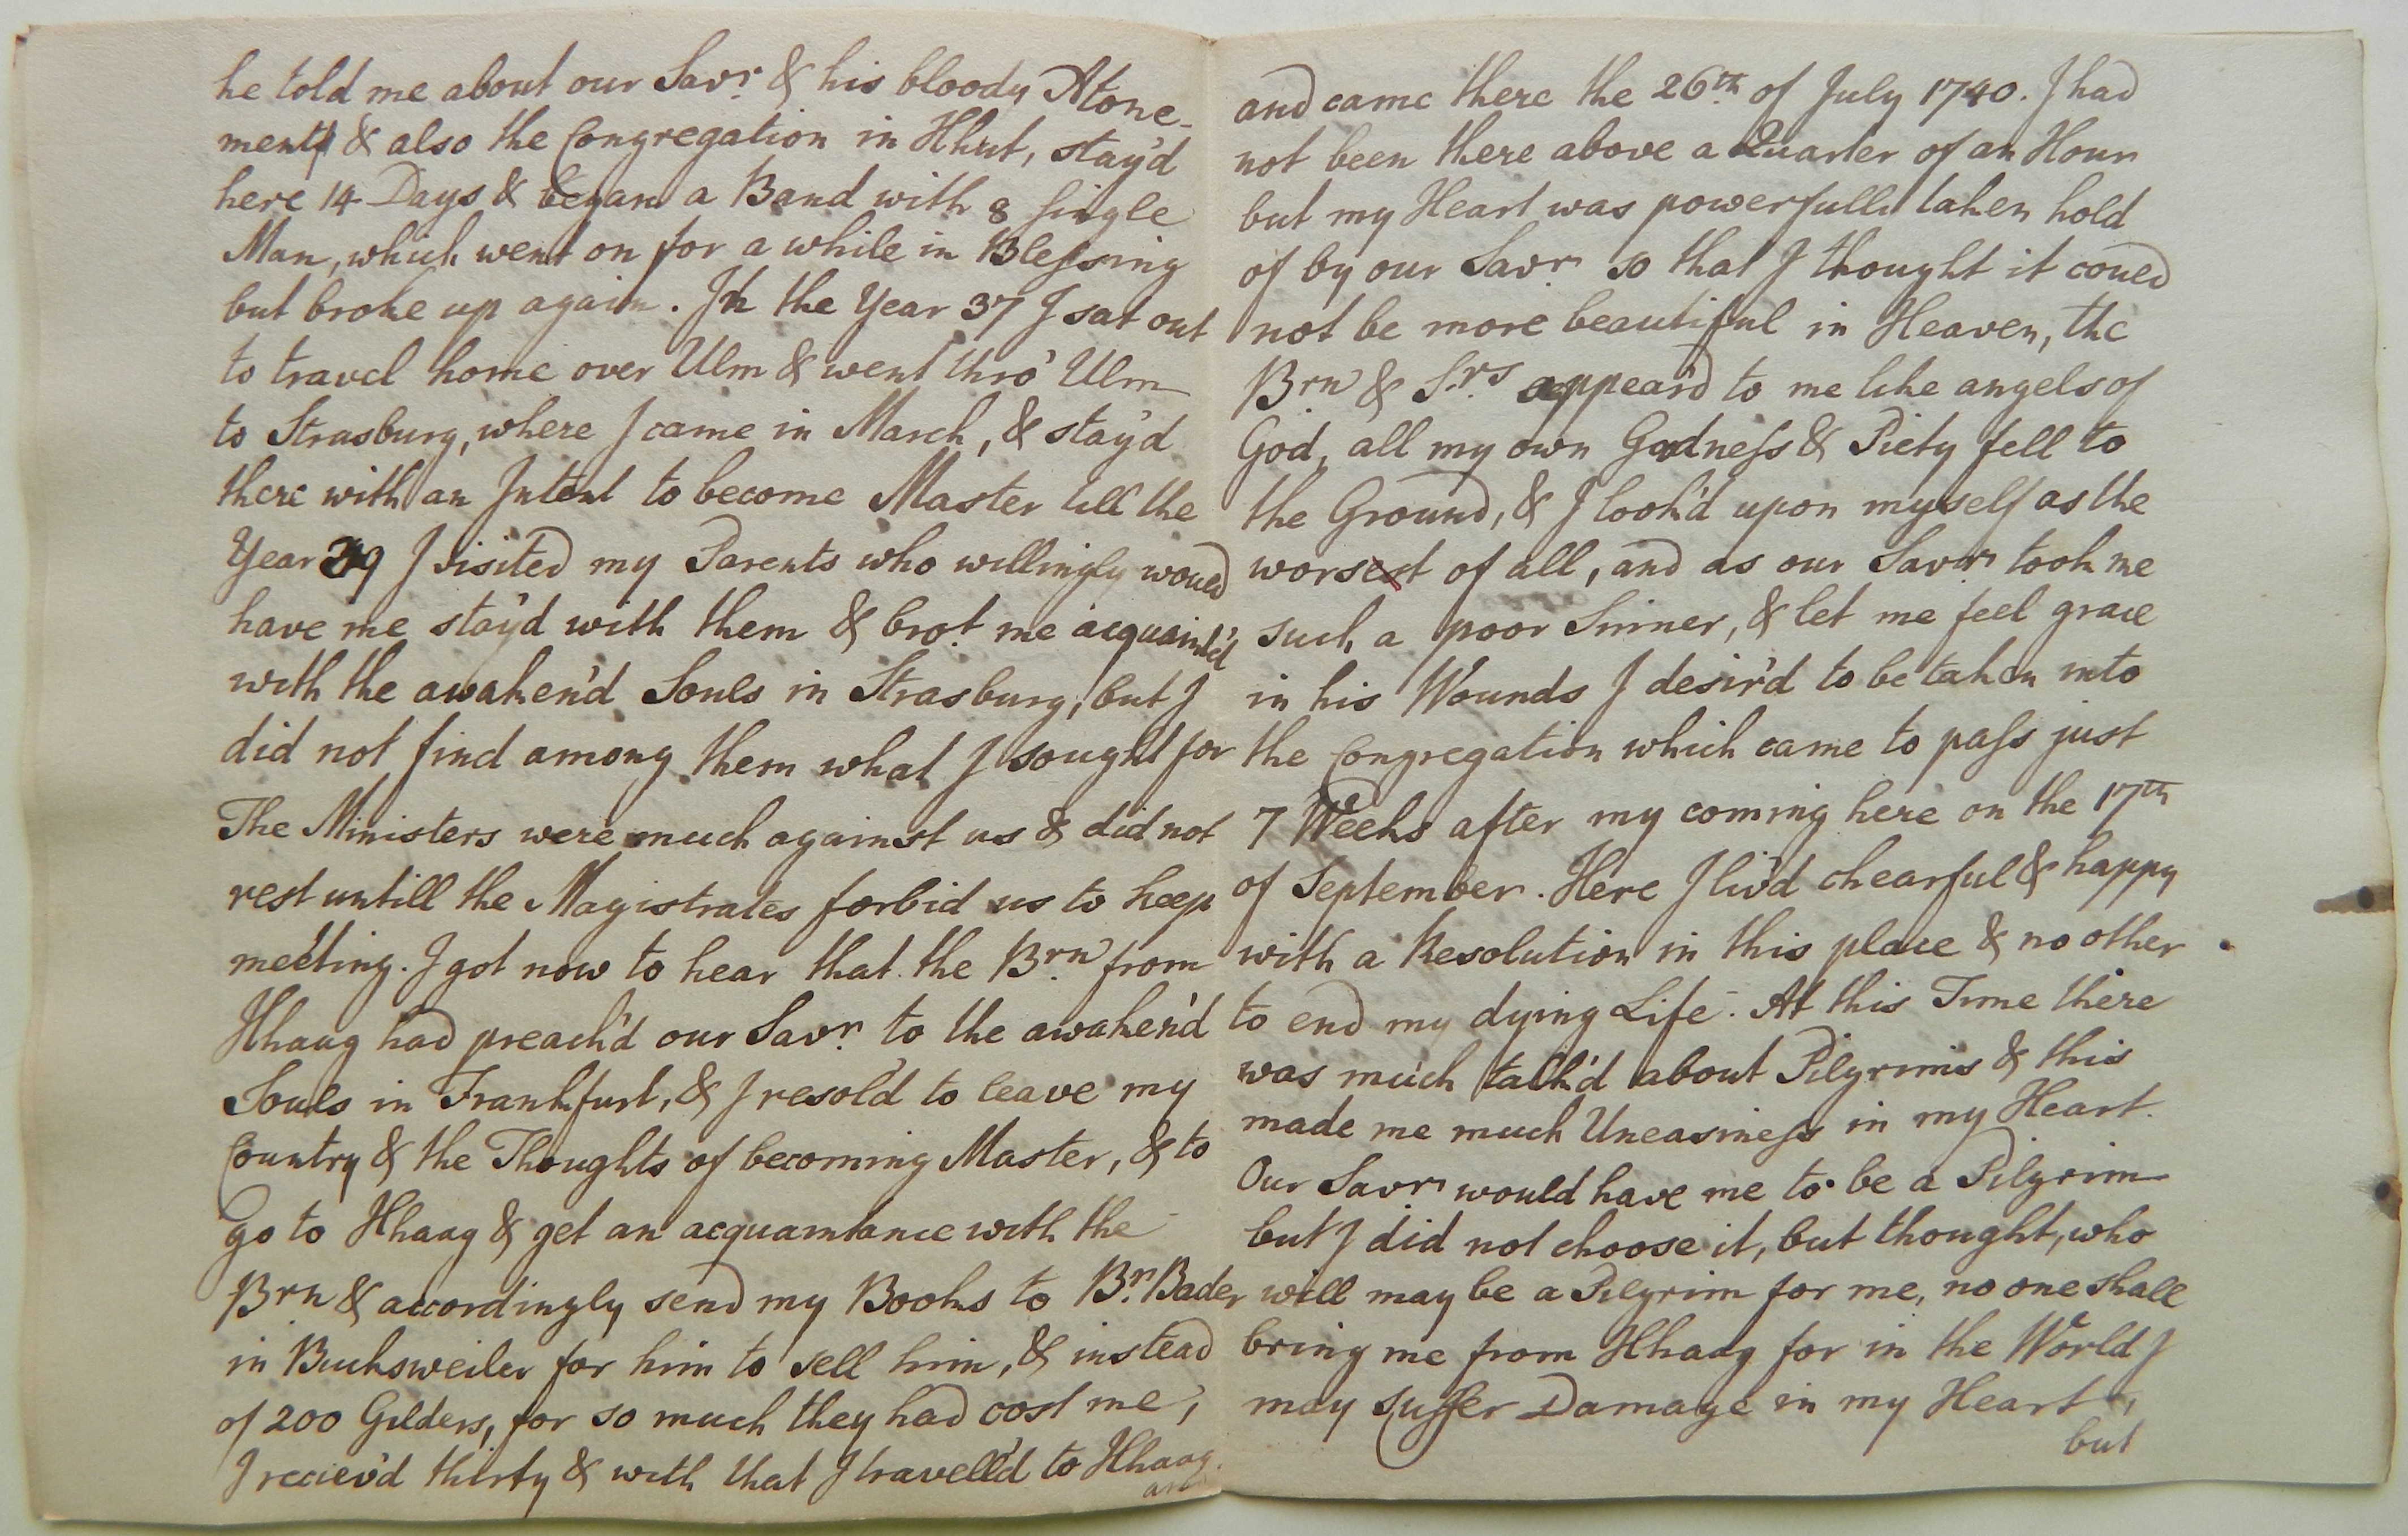 he told me about our Savr. & his bloody Atone-
ment & also the Congregation in Hhut, stay'd
here 14 Days & began a Band with 8 single
Man, which went on for a while in Blessing
but broke up again. In the Year 37 I sat out
to travel home over Ulm & went thro' Ulm
to Strasburg, where I came in March, & stay'd
there with an Intent to become Master till the
Year 39 I visited my Parents who willingly woued
have me stay'd with them & brot. me acquaint'd
with the awaken'd Souls in Strasburg, but I
did not find among them what I sought for
The Ministers were much against us & did not
rest untill the Magistrates forbid us to keep
meeting. I got now to hear that the Brn. from
Hhaag had preach'd our Savr. to the awaken'd
Souls in Frankfurt, & I resol'd to leave my
Country & the Thoughts of becoming Master, & to
go to Hhaag & get an acquaintance with the
Brn & accordingly send my Books to Br. Bader
in Buchsweiler for him to sell him, & instead
of 200 Gilders, for so much they had cost me,
I reciev'd thirty & with that I travell'd to Hhaag.
and
and came there the 26th. of July 1740. I had
not been there above a Quarter of an Hour
but my Heart was powerfully taken hold
of by our Savr. so that I thought it coued
not be more beautiful in Heaven, the
Brn & Srs. appear'd to me like angels of
God, all my own Godness & Piety fell to
the Ground, & I look'd upon myself as the
worsest of all, and as our Savr took me
such a poor Sinner, & let me feel grace
in his Wounds I desir'd to be taken into
the Congregation which came to pass just
7 Weeks after my coming here on the 17th
of September. Here I liv'd chearful & happy
with a Resolution in this place & no other
to end my dying Life. At this Time there
was much talk'd about Pilgrims & this
made me much Uneasiness in my Heart.
Our Savr would have me to be a Pilgrim
but I did not choose it, but thought, who
will may be a Pilgrim for me, no one shall
bring me from Hhaag for in the World I
may suffer Damage in my Heart,
but